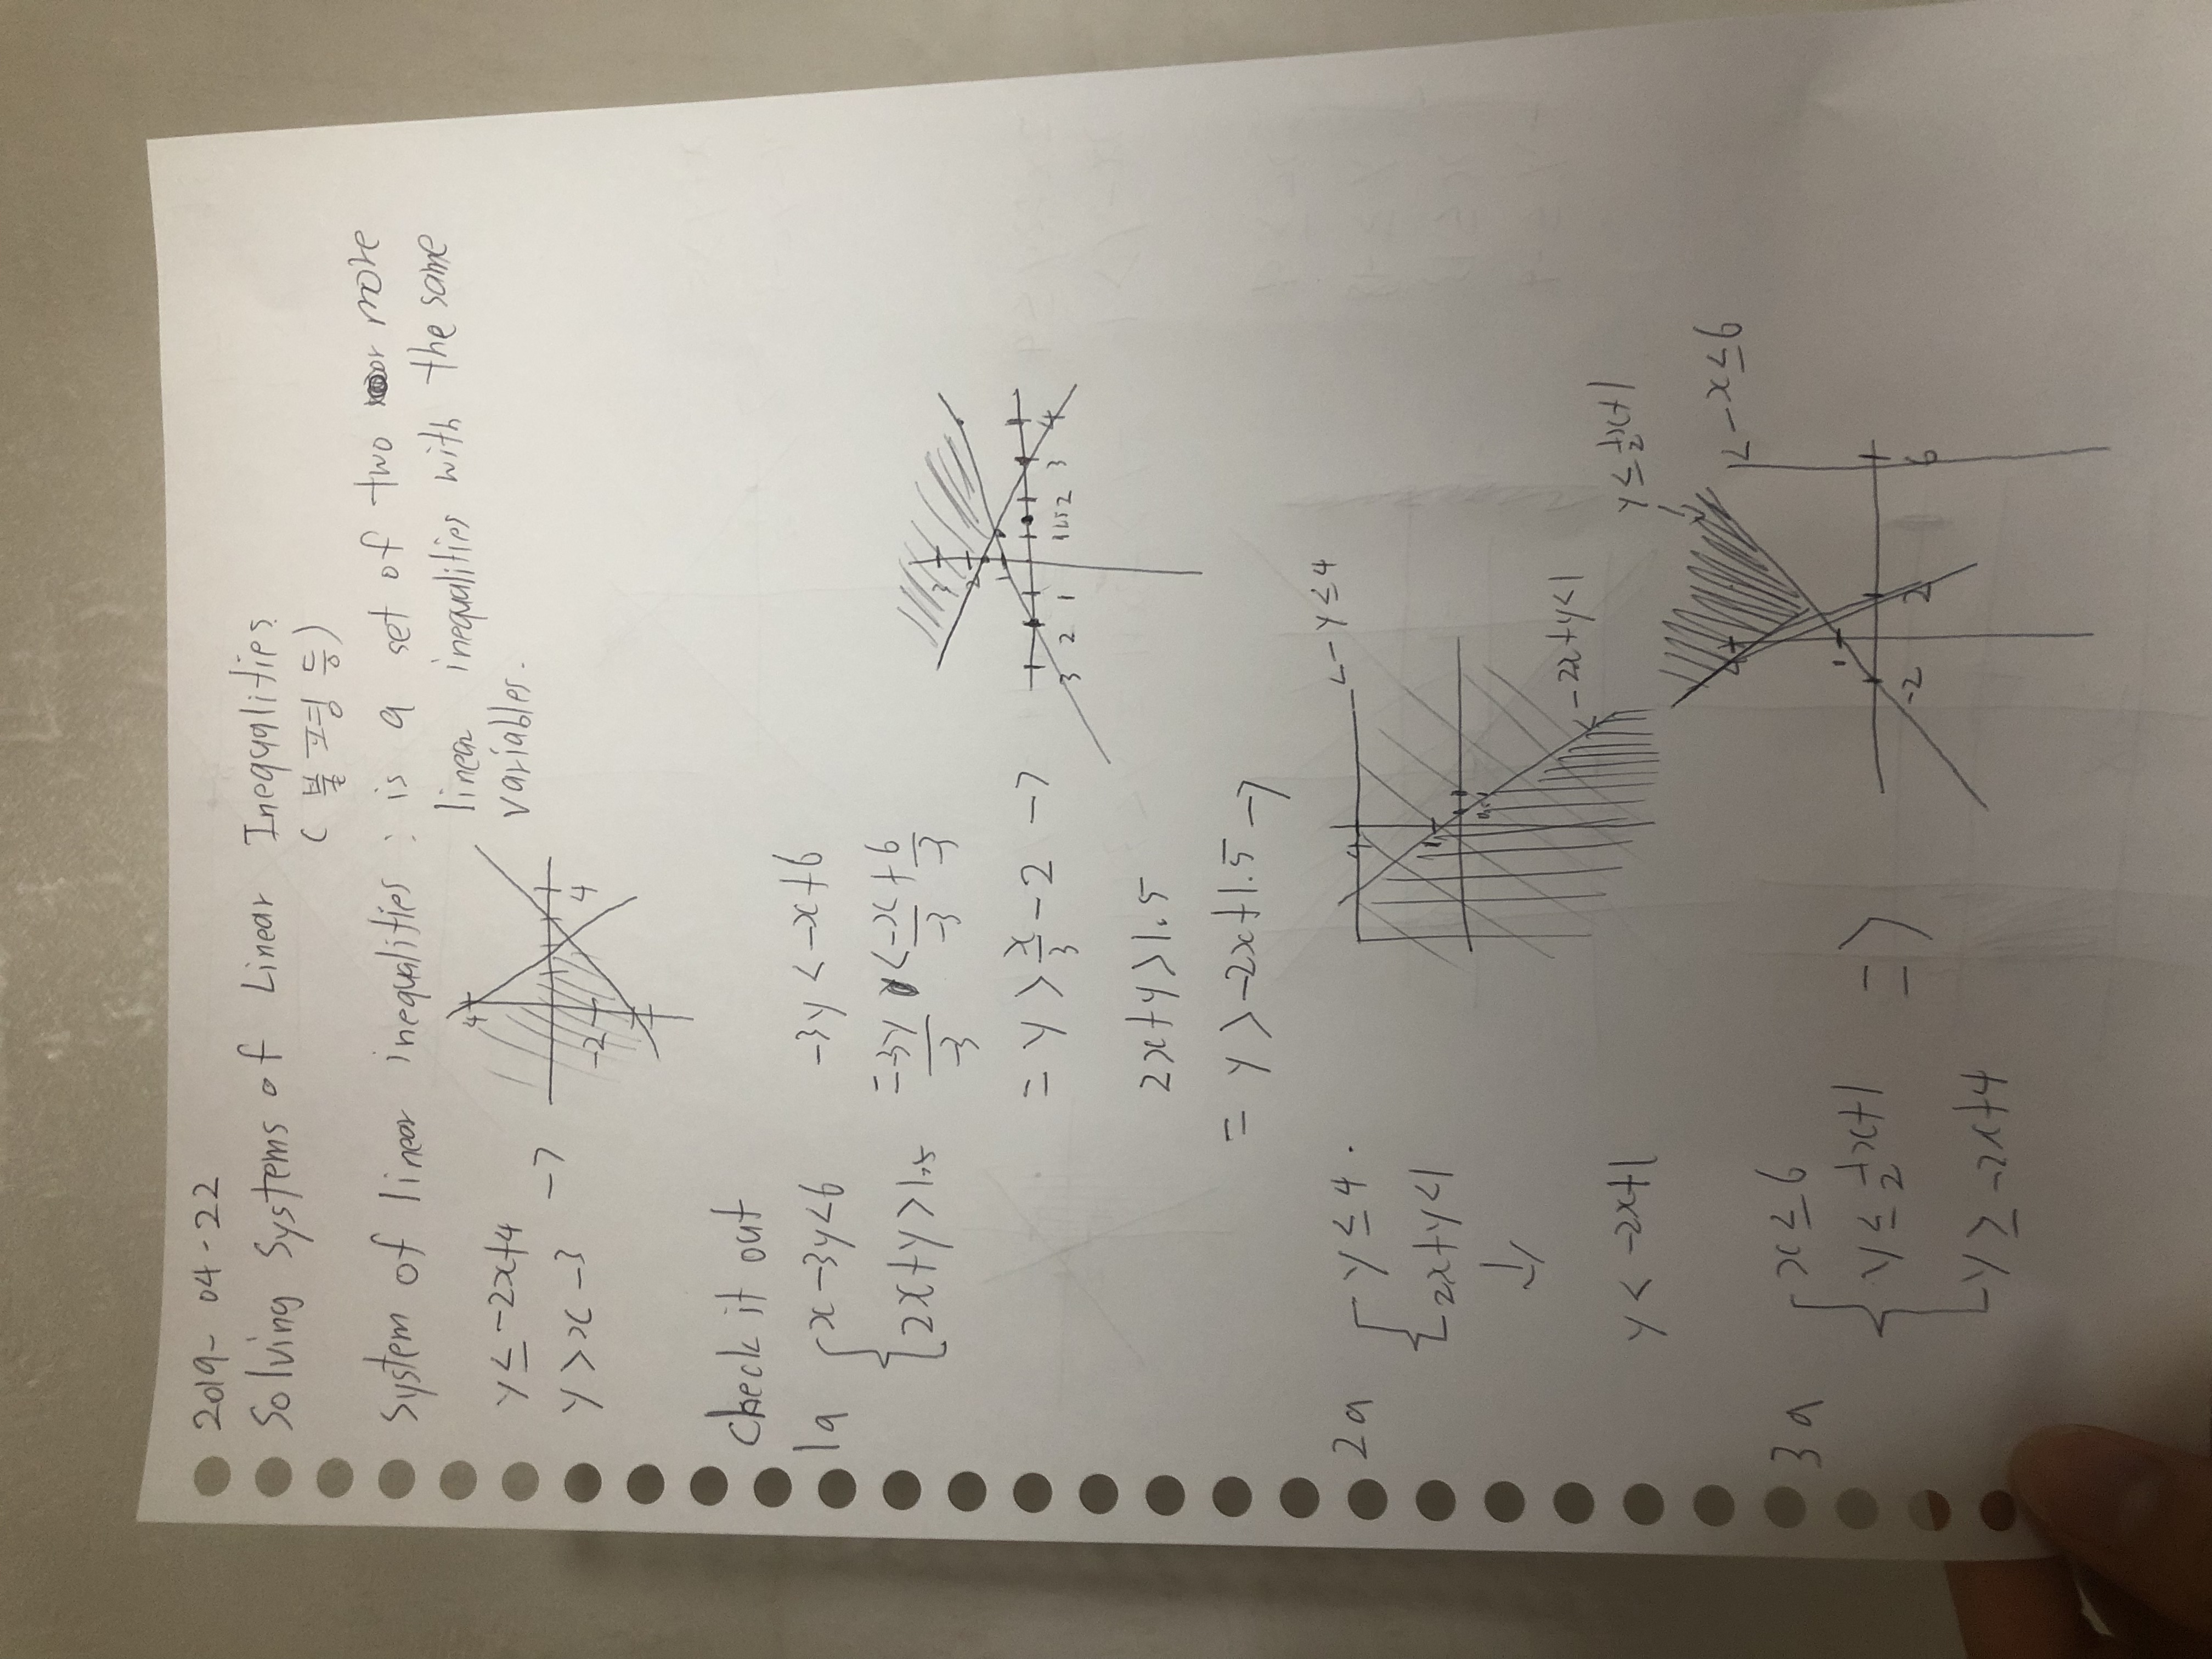 2019-04-22
Solving Systems of Linear Inequalities
(불평등)
System of linear inequalities : is a set of two or more
linear inequalities with the same
variables.
y ≤ -2x+4
y > x -3 →
4
4
-2
Check it out
1a { x -3y<6
2x+y>1.5
-3y < -x+6
= -3y/-3 < -x/-3 + 6/-3
= y > x/3 -2 →
2x+y>1.5
= y > -2x+1.5 →
3
2
1
3 2 1 1 1.5 2 3 4
2a { y ≤ 4.
2x+y<1
↓
y < -2x+1
4
1
0.5
← y ≤ 4
← 2x+y<1
3a { x ≤ 6
y ≤ 1/2x+1
y ≥ -2x+4
⇒
y ≤ 1/2x+1
← x ≤ 6
4
1
-2 2 6